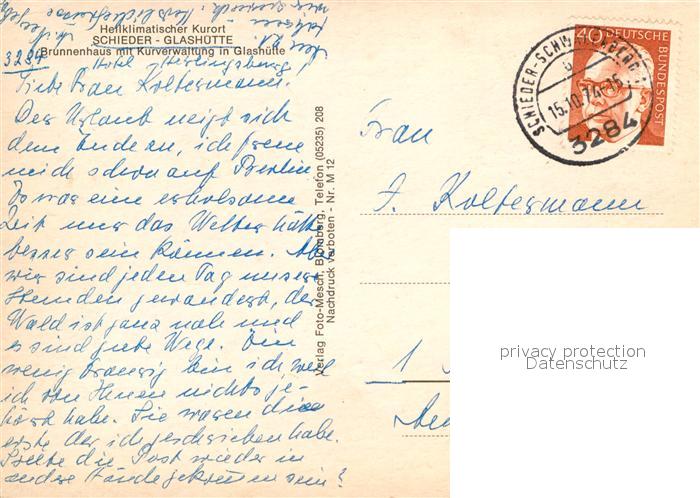 Heilklimatischer Kurort
SCHIEDER - GLASHÜTTE
Brunnenhaus mit Kurverwaltung in Glashütte
3284
Hotel Herlingsburg
Liebe Frau Koltermann!
Der Urlaub neigt sich
dem Ende zu, ich freue
mich schon auf Berlin.
Es war eine erholsame
Zeit nur das Wetter hätte
besser sein können. Aber
wir sind jeden Tag unsere
Stunden gewandert, der
Wald ist ganz nah und
es sind gute Wege. Ein
wenig traurig bin ich weil
ich von Ihnen nichts ge-
hört habe. Sie waren die
erste der ich geschrieben habe.
Sollte die Post wieder in
andere Hände gekommen sein?
Verlag Foto-Mesch, Blomberg, Telefon (05235) 208
Nachdruck verboten - Nr. M 12
40 DEUTSCHE BUNDESPOST
SCHIEDER-SCHWALENBERG 1
b
15.10.74-15
3284
Frau
A. Koltermann
1
privacy protection
Datenschutz